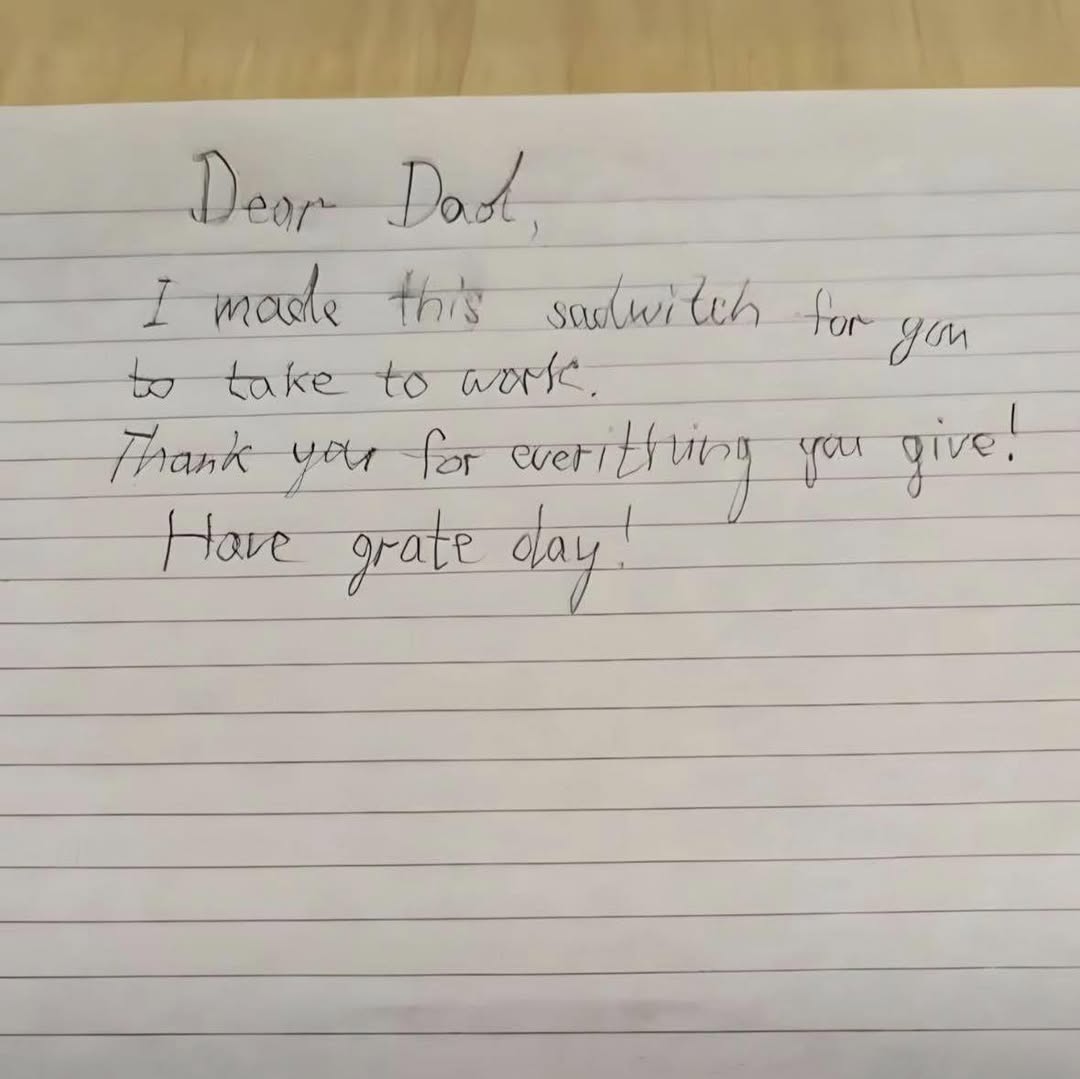 Dear Dad,
I made this sadwitch for you
to take to work.
Thank you for everithing you give!
Have grate day!